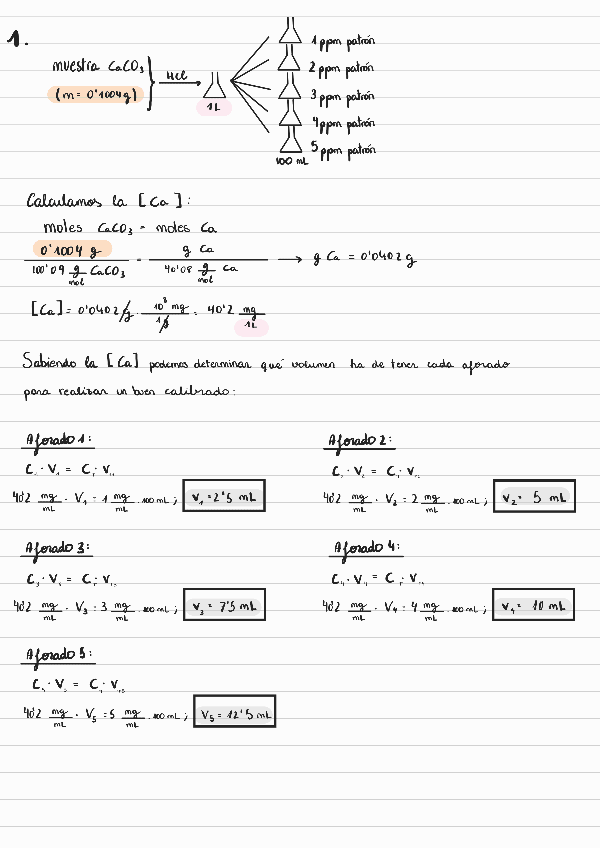 1.
muestra CaCO₃
(m = 0'1004 g)
HCl
1L
1 ppm patrón
2 ppm patrón
3 ppm patrón
4 ppm patrón
5 ppm patrón
100 mL
Calculamos la [Ca]:
moles CaCO₃ = moles Ca
0'1004 g / 100'09 g/mol CaCO₃ = g Ca / 40'08 g/mol Ca → g Ca = 0'0402 g
[Ca] = 0'0402 g · 10³ mg / 1 g = 40'2 mg / 1L
Sabiendo la [Ca] podemos determinar qué volumen ha de tener cada aforado
para realizar un buen calibrado:
Aforado 1:
C · V = C · V
40'2 mg/mL · V₁ = 1 mg/mL · 100 mL ; V₁ = 2'5 mL
Aforado 2:
C · V = C · V
40'2 mg/mL · V₂ = 2 mg/mL · 100 mL ; V₂ = 5 mL
Aforado 3:
C · V = C · V
40'2 mg/mL · V₃ = 3 mg/mL · 100 mL ; V₃ = 7'5 mL
Aforado 4:
C · V = C · V
40'2 mg/mL · V₄ = 4 mg/mL · 100 mL ; V₄ = 10 mL
Aforado 5:
C · V = C · V
40'2 mg/mL · V₅ = 5 mg/mL · 100 mL ; V₅ = 12'5 mL